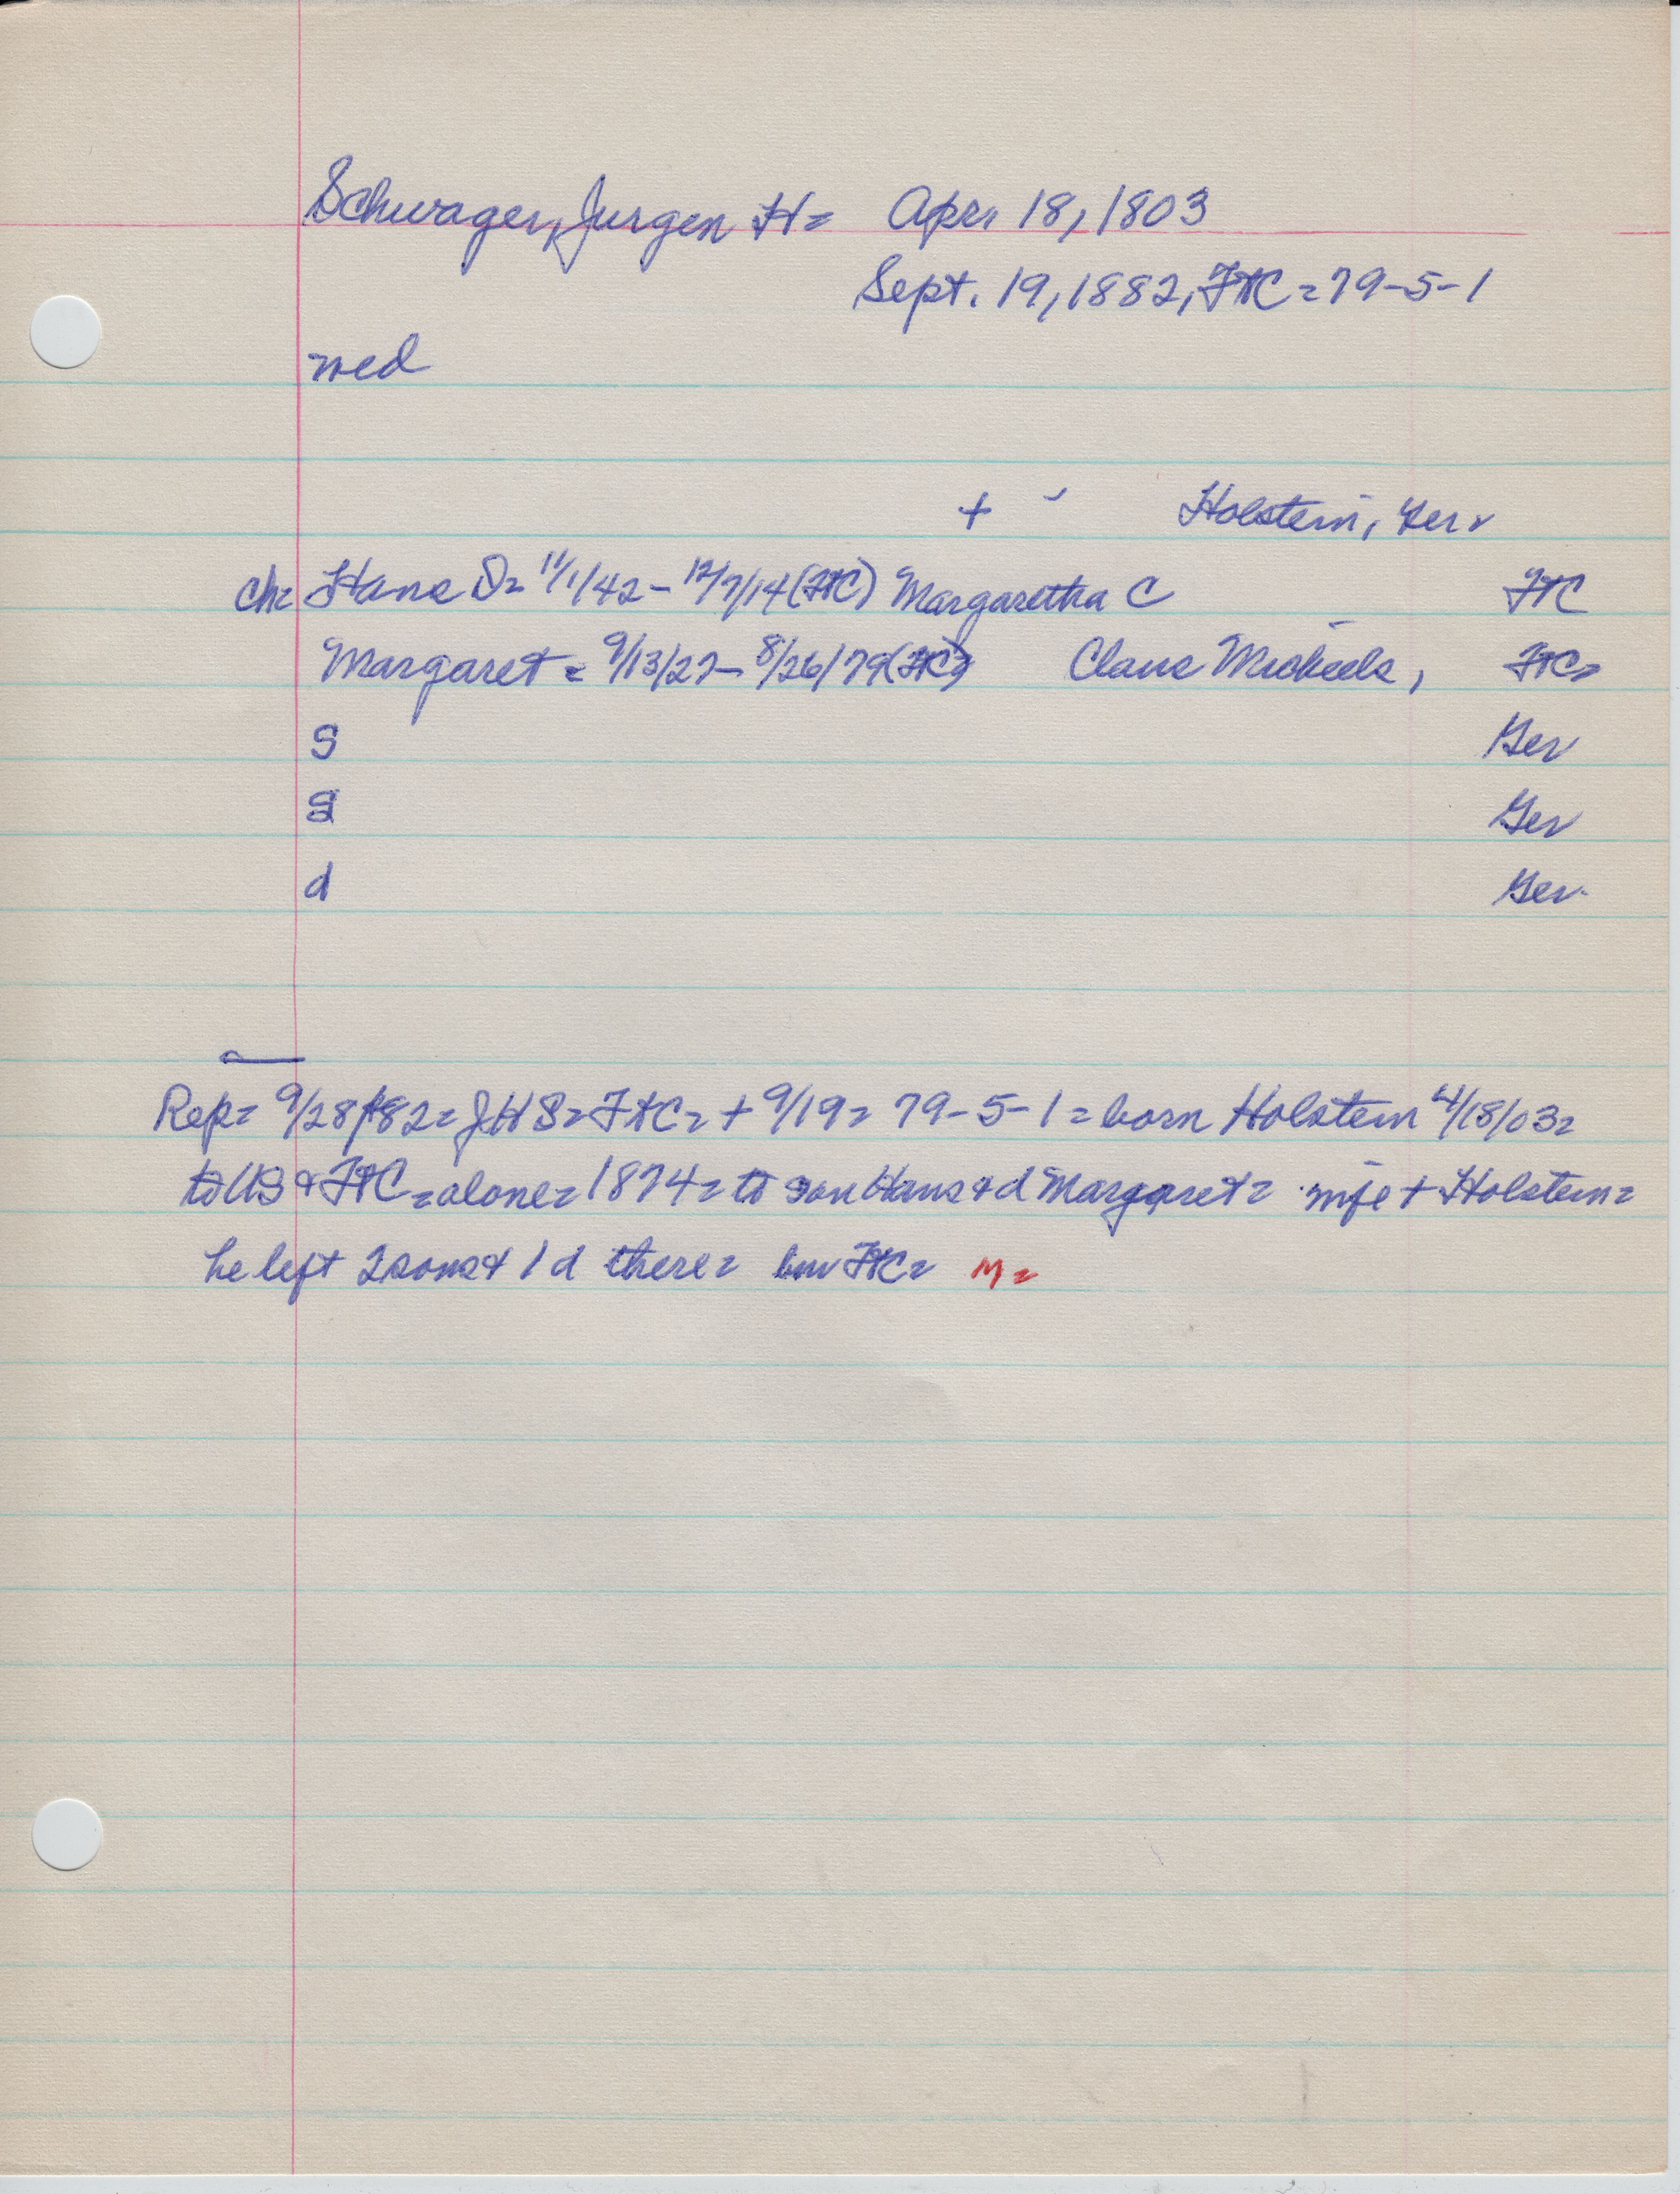 Schwager, Jurgen H= Apr. 18, 1803
Sept. 19, 1882, FtC = 79-5-1
med
+ Holstein, Ger
ch= Hans D= 11/1/42 - 12/7/14 (FtC) Margaretha C FtC
Margaret = 9/13/27 - 8/26/79 (FtC) Claus Michaels, FtC=
S Ger
S Ger
d Ger
Rep= 9/28/82= JHS= FtC= + 9/19= 79-5-1= born Holstein 4/18/03=
to US & FtC= alone= 1874= to son Hans & d Margaret= wife + Holstein=
he left 2 sons & 1 d there= bur FtC= M=